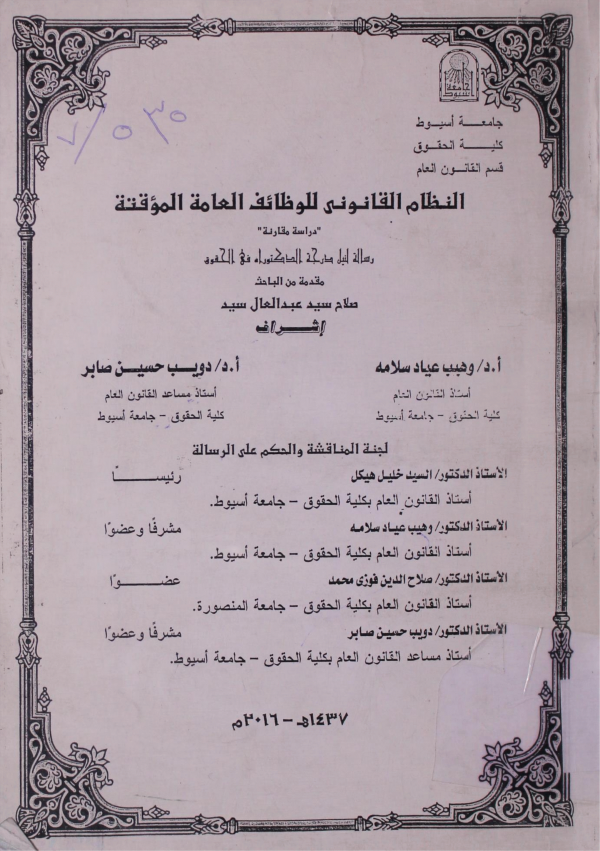 جامعة أسيوط
جامعة أسيوط
كلية الحقوق
قسم القانون العام
٧/٥٣٥
النظام القانونى للوظائف العامة المؤقتة
"دراسة مقارنة"
رسالة لنيل درجة الدكتوراه فى الحقوق
مقدمة من الباحث
صلاح سيد عبدالعال سيد
إشراف
أ.د/ وهيب عياد سلامه
أ.د/ دويب حسين صابر
أستاذ القانون العام
أستاذ مساعد القانون العام
كلية الحقوق - جامعة أسيوط
كلية الحقوق - جامعة أسيوط
لجنة المناقشة والحكم على الرسالة
الأستاذ الدكتور/ السيد خليل هيكل رئيسًا
أستاذ القانون العام بكلية الحقوق – جامعة أسيوط.
الأستاذ الدكتور/ وهيب عياد سلامه مشرفًا وعضوًا
أستاذ القانون العام بكلية الحقوق – جامعة أسيوط.
الأستاذ الدكتور/ صلاح الدين فوزى محمد عضوًا
أستاذ القانون العام بكلية الحقوق – جامعة المنصورة.
الأستاذ الدكتور/ دويب حسين صابر مشرفًا وعضوًا
أستاذ مساعد القانون العام بكلية الحقوق – جامعة أسيوط.
١٤٣٧هـ - ٢٠١٦م